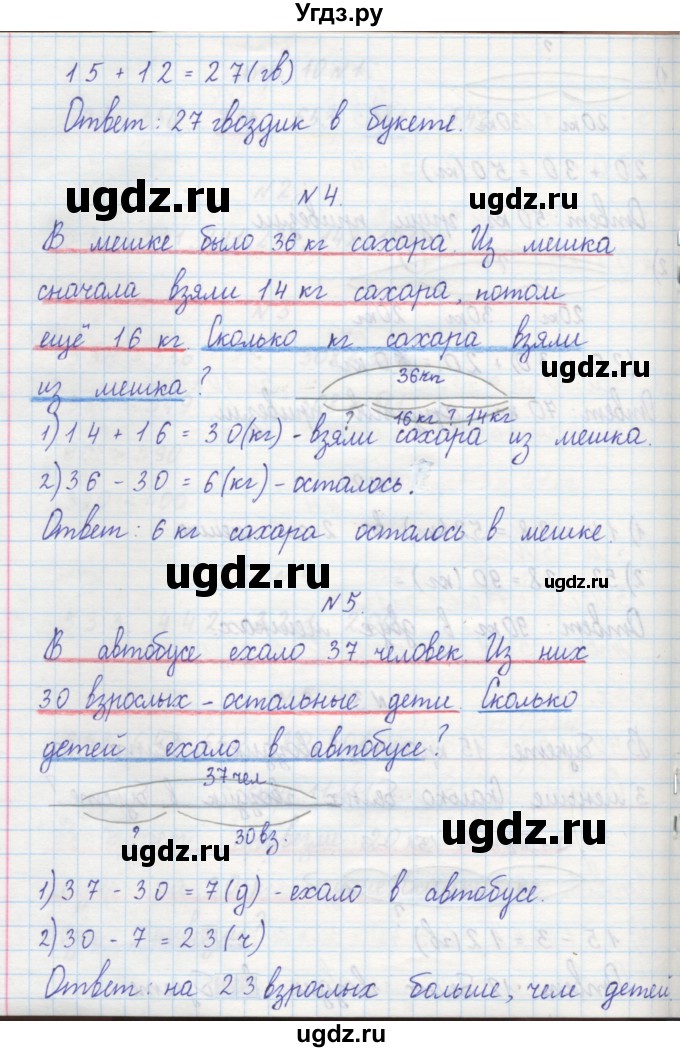 Угдз.ру
15 + 12 = 27(гв)
Ответ: 27 гвоздик в букете.
ugdz.ru ugdz.ru
N 4.
В мешке было 36 кг сахара. Из мешка
сначала взяли 14 кг сахара, потом
ещё 16 кг. Сколько кг сахара взяли
ugdz.ru
из мешка?
36кг
? 16кг ? 14кг
1) 14 + 16 = 30(кг) - взяли сахара из мешка.
2) 36 - 30 = 6(кг) - осталось.
Ответ: 6 кг сахара осталось в мешке.
ugdz.ru ugdz.ru
N 5.
В автобусе ехало 37 человек. Из них
30 взрослых - остальные дети. Сколько
детей ехало в автобусе?
37чел
? 30вз.
ugdz.ru ugdz.ru
1) 37 - 30 = 7(д) - ехало в автобусе.
2) 30 - 7 = 23(ч)
Ответ: на 23 взрослых больше, чем детей
ugdz.ru